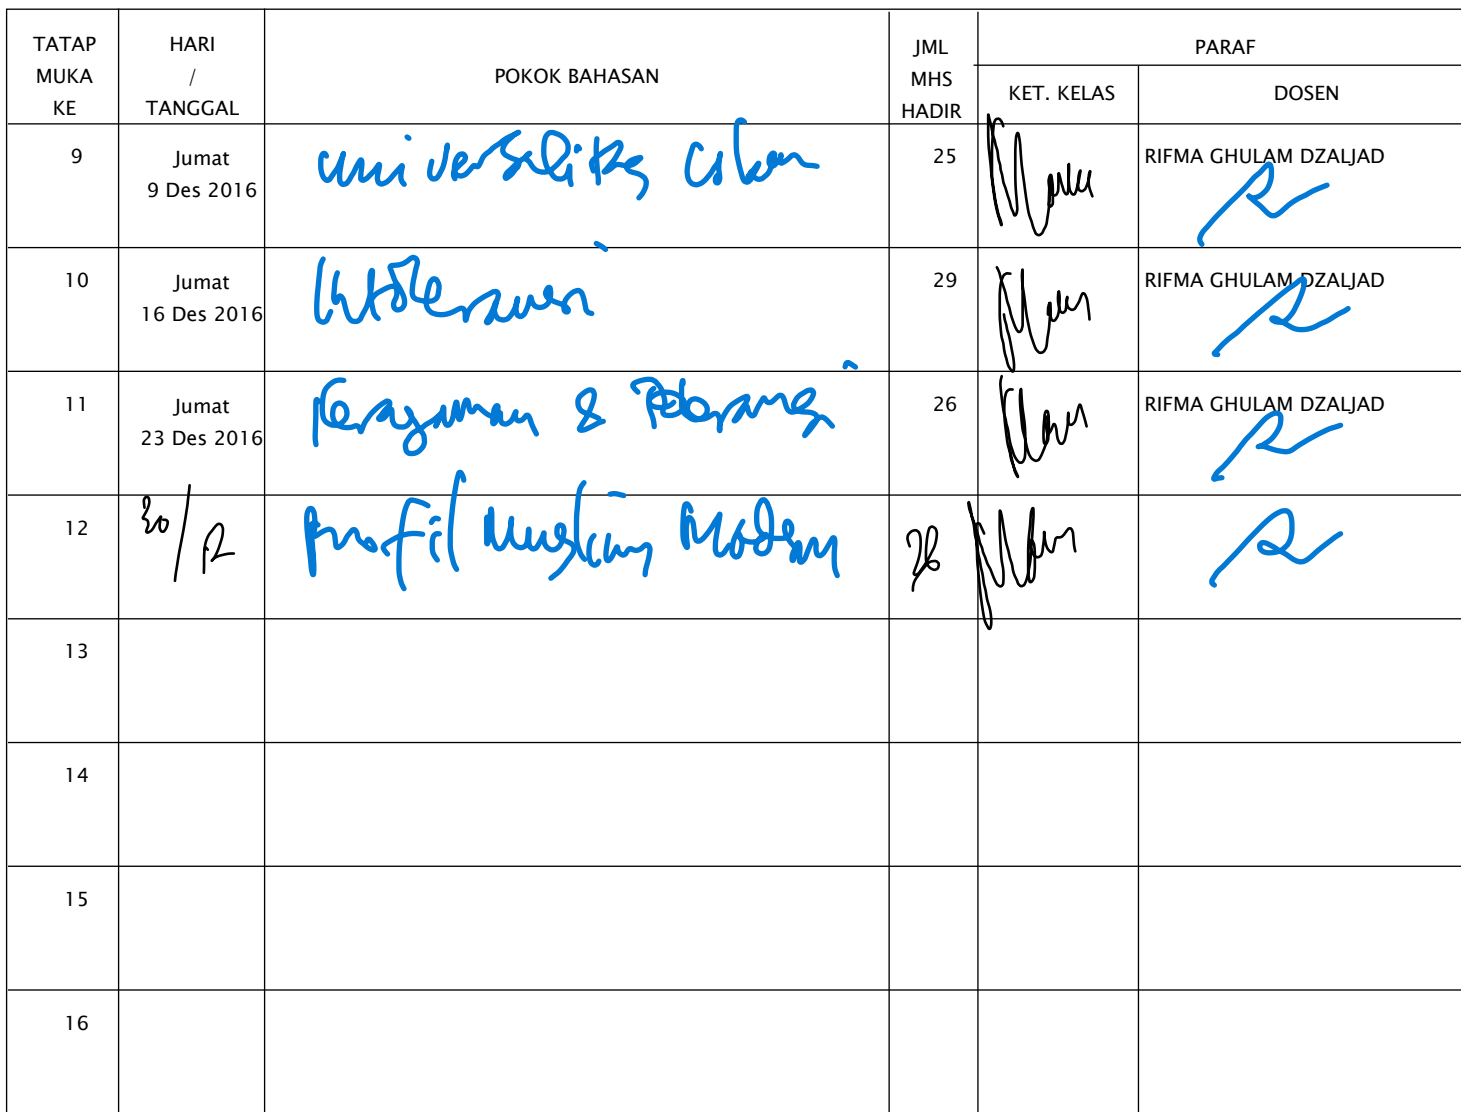 TATAP MUKA KE HARI / TANGGAL POKOK BAHASAN JML MHS HADIR PARAF
KET. KELAS DOSEN
9 Jumat 9 Des 2016 universalitas Islam 25 RIFMA GHULAM DZALJAD
10 Jumat 16 Des 2016 Intoleransi 29 RIFMA GHULAM DZALJAD
11 Jumat 23 Des 2016 Keragaman & Toleransi 26 RIFMA GHULAM DZALJAD
12 30/12 Profil Muslim Modern 26
13
14
15
16